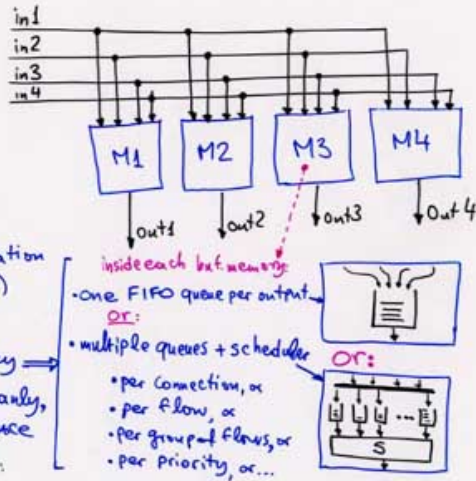 in1
in2
in3
in4
M1 M2 M3 M4
out1 out2 out3 out4
inside each buf. memory:
• one FIFO queue per output
or:
• multiple queues + scheduler
• per connection, or
• per flow, or
• per grouped flows, or
• per priority, or...
or:
S